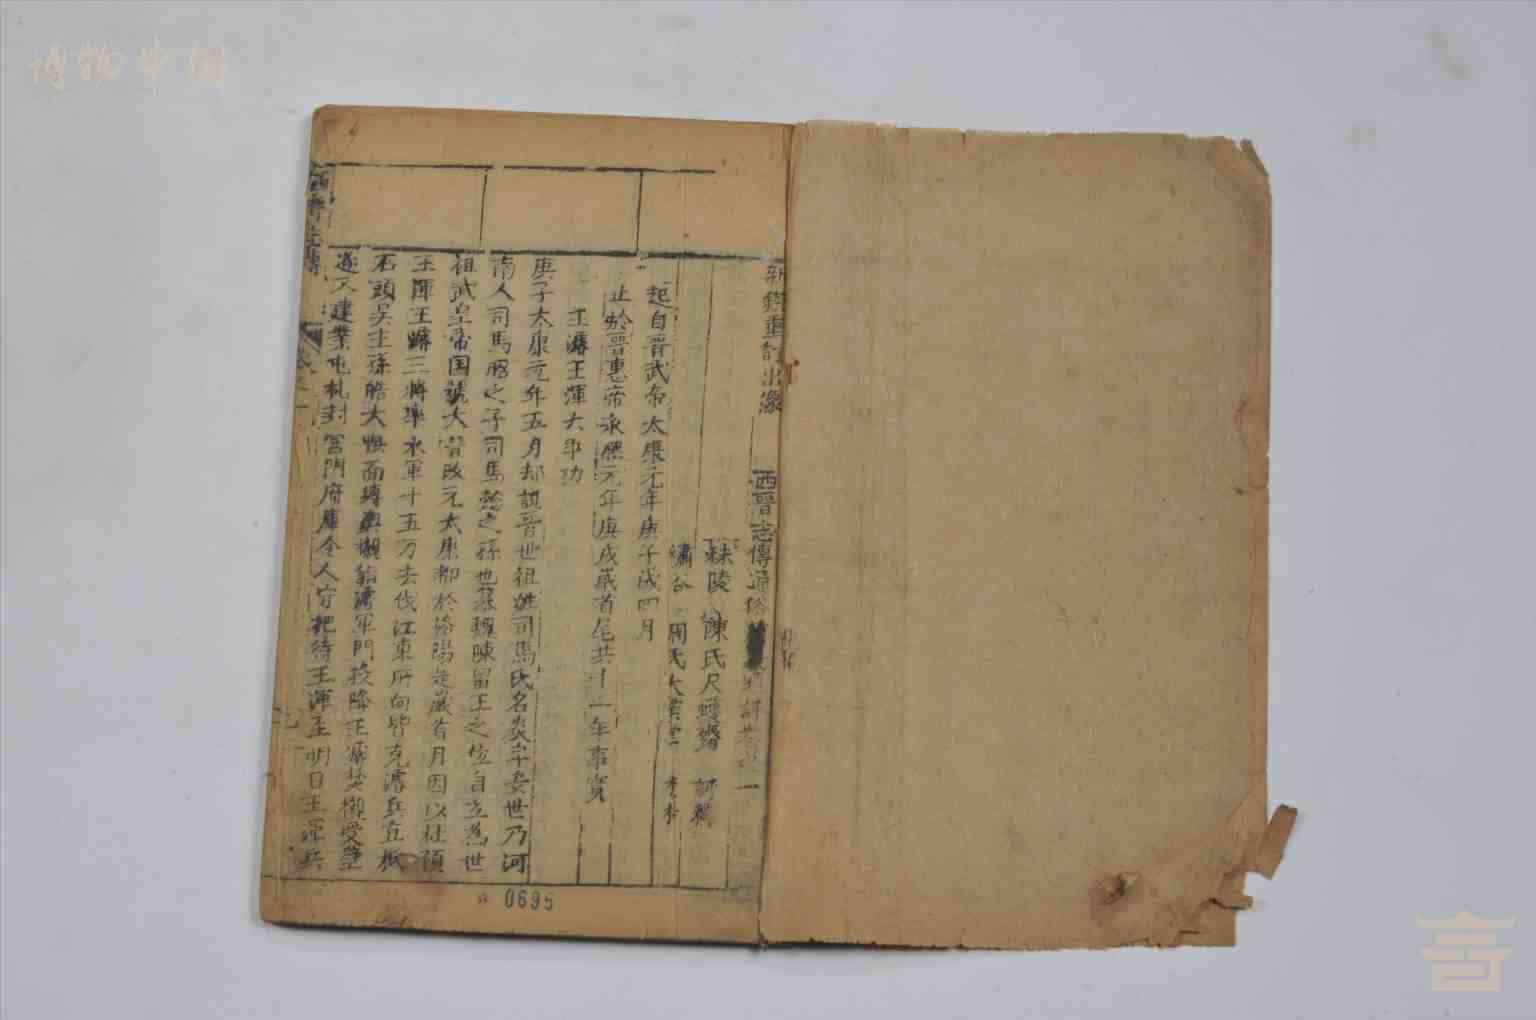 博物中国
新鍥重訂出像 西晉志傳通俗 評卷之一
秣陵 陳氏尺蠖齋 評釋
繡谷 周氏大業堂 校梓
起自晉武帝太康元年庚子歲四月
止於晉惠帝永熙元年庚戌歲首尾共十一年事實
王濬王渾大爭功
庚子太康元年五月却說晉世祖姓司馬氏名炎字安世乃河
南人司馬昭之子司馬懿之孫也篡魏陳留王之位自立爲世
祖武皇帝国號大晉改元太康都於洛陽是歲首月因以杜預
王渾王濬三將率水軍十五万去伐江東所向皆克濬兵直抵
石頭吳主孫皓大懼面縛輿櫬詣濬軍門投降王濬焚櫬受璧
遂入建業屯札封宮門府庫令人守把待王渾至明日王渾兵
西晉志傳
卷之一
0695